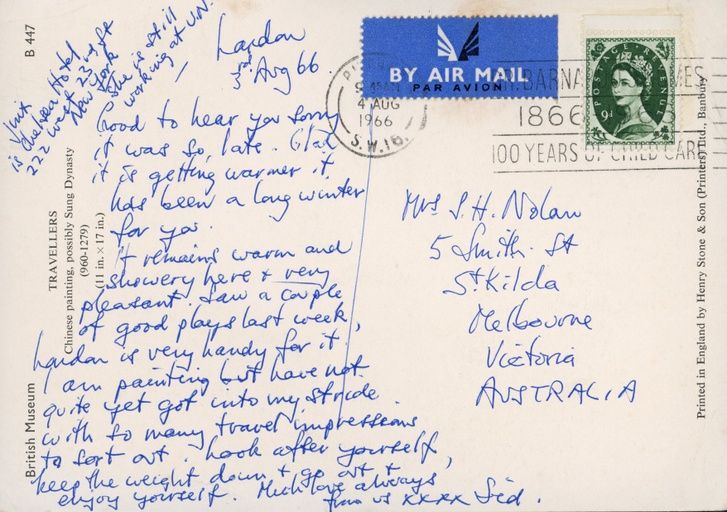 B 447
Jinx
is Chelsea Hotel
222 west 23rd st
New York
She is still
working at U.N.
London
3rd Aug 66
Good to hear you sorry
it was so late. Glad
it is getting warmer it
has been a long winter
for you.
It remains warm and
showery here & very
pleasant. Saw a couple
of good plays last week,
London is very handy for it.
I am painting but have not
quite yet got into my stride
with so many travel impressions
to sort out. Look after yourself,
keep the weight down & go out &
enjoy yourself. Much love always
from us xxxx Sid.
TRAVELLERS
Chinese painting, possibly Sung Dynasty
(960-1279)
(11 in. × 17 in.)
British Museum
BY AIR MAIL
PAR AVION
4 AUG
1966
S.W.15.
R. BARNA MES
1866
100 YEARS OF CHILD CARE
POSTAGE REVENUE
9d
Mrs S. H. Nolan
5 Smith St
St Kilda
Melbourne
Victoria
AUSTRALIA
Printed in England by Henry Stone & Son (Printers) Ltd., Banbury